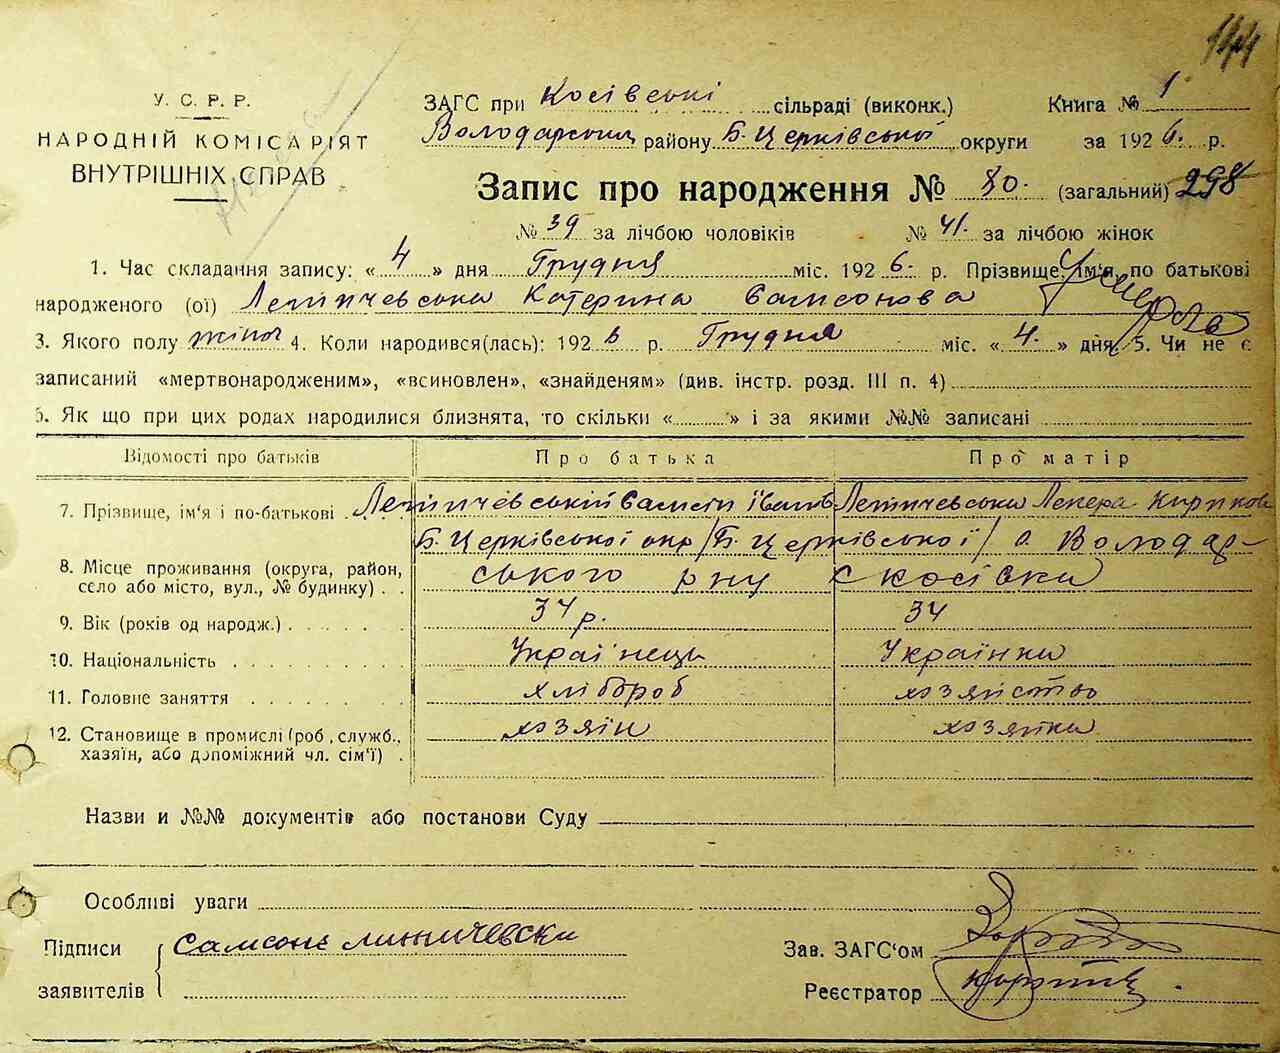 144
У. С. Р. Р.
НАРОДНІЙ КОМІСАРІЯТ
ВНУТРІШНІХ СПРАВ
ЗАГС при Косівські сільраді (виконк.) Книга № 1
Володарском району Б. Церківської округи за 1926. р.
Запис про народження № 80. (загальний) 298
№ 39 за лічбою чоловіків № 41. за лічбою жінок
1. Час складання запису: «4» дня Грудня міс. 1926. р. Прізвище, ім'я, по батькові
народженого (ої) Летичевська Катерина Самсонова
3. Якого полу жіноч 4. Коли народився(лась): 1926 р. Грудня міс. «4.» дня, 5. Чи не є
записаний «мертвонародженим», «всиновлен», «знайденям» (див. інстр. розд. III п. 4)
6. Як що при цих родах народилися близнята, то скільки «» і за якими №№ записані
Відомості про батьків Про батька Про матір
7. Прізвище, ім'я і по-батькові Летичевській Самсон Іванов Летичевська Лекера Кирикова
Б. Церківської окр / Б. Церківської / о. Володар-
8. Місце проживання (округа, район, ського рну с Косівка
село або місто, вул., № будинку)
9. Вік (років од народж.) 34 р. 34
10. Національність Українець Українка
11. Головне заняття хлібороб хозяйство
12. Становище в промислі (роб, служб., хозяїн хозяйка
хазяїн, або допоміжний чл. сім'ї)
Назви и №№ документів або постанови Суду
Особливі уваги
Підписи Самсонь линичевски Зав. ЗАГС'ом
заявителів Реєстратор